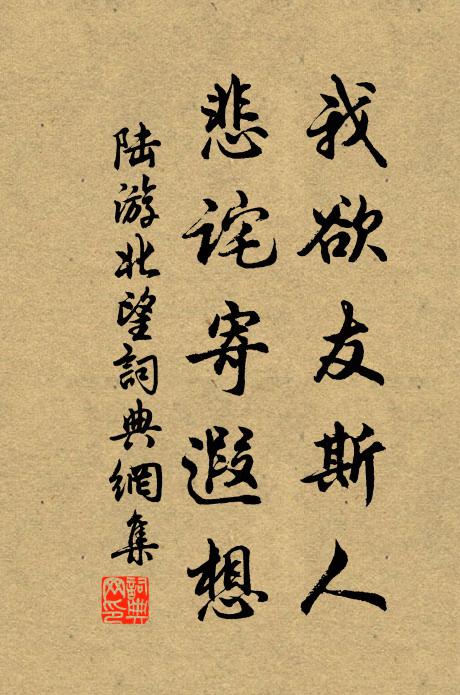 我欲友斯人
悲诧寄遐想
陆游北望詞典網集
詞典
网印